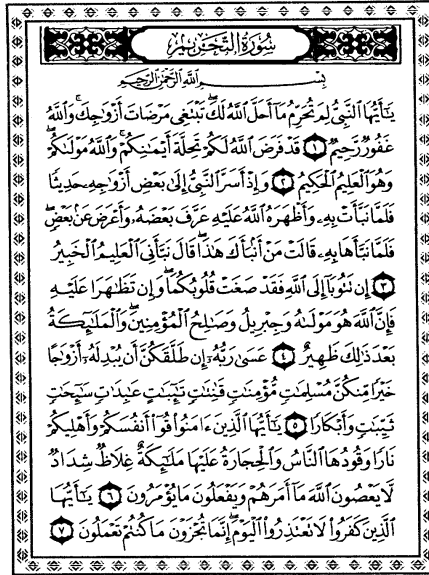 سُورَةُ التَّحْرِيمِ
بِسْمِ اللَّهِ الرَّحْمَٰنِ الرَّحِيمِ
يَٰٓأَيُّهَا ٱلنَّبِىُّ لِمَ تُحَرِّمُ مَآ أَحَلَّ ٱللَّهُ لَكَ ۖ تَبْتَغِى مَرْضَاتَ أَزْوَٰجِكَ ۚ وَٱللَّهُ
غَفُورٌ رَّحِيمٌ ١ قَدْ فَرَضَ ٱللَّهُ لَكُمْ تَحِلَّةَ أَيْمَٰنِكُمْ ۚ وَٱللَّهُ مَوْلَىٰكُمْ ۖ
وَهُوَ ٱلْعَلِيمُ ٱلْحَكِيمُ ٢ وَإِذْ أَسَرَّ ٱلنَّبِىُّ إِلَىٰ بَعْضِ أَزْوَٰجِهِۦ حَدِيثًا
فَلَمَّا نَبَّأَتْ بِهِۦ وَأَظْهَرَهُ ٱللَّهُ عَلَيْهِ عَرَّفَ بَعْضَهُۥ وَأَعْرَضَ عَنۢ بَعْضٍ ۖ
فَلَمَّا نَبَّأَهَا بِهِۦ قَالَتْ مَنْ أَنۢبَأَكَ هَٰذَا ۖ قَالَ نَبَّأَنِىَ ٱلْعَلِيمُ ٱلْخَبِيرُ
٣ إِن تَتُوبَآ إِلَى ٱللَّهِ فَقَدْ صَغَتْ قُلُوبُكُمَا ۖ وَإِن تَظَٰهَرَا عَلَيْهِ
فَإِنَّ ٱللَّهَ هُوَ مَوْلَىٰهُ وَجِبْرِيلُ وَصَٰلِحُ ٱلْمُؤْمِنِينَ ۖ وَٱلْمَلَٰٓئِكَةُ
بَعْدَ ذَٰلِكَ ظَهِيرٌ ٤ عَسَىٰ رَبُّهُۥٓ إِن طَلَّقَكُنَّ أَن يُبْدِلَهُۥٓ أَزْوَٰجًا
خَيْرًا مِّنكُنَّ مُسْلِمَٰتٍ مُّؤْمِنَٰتٍ قَٰنِتَٰتٍ تَٰٓئِبَٰتٍ عَٰبِدَٰتٍ سَٰٓئِحَٰتٍ
ثَيِّبَٰتٍ وَأَبْكَارًا ٥ يَٰٓأَيُّهَا ٱلَّذِينَ ءَامَنُوا۟ قُوٓا۟ أَنفُسَكُمْ وَأَهْلِيكُمْ
نَارًا وَقُودُهَا ٱلنَّاسُ وَٱلْحِجَارَةُ عَلَيْهَا مَلَٰٓئِكَةٌ غِلَاظٌ شِدَادٌ
لَّا يَعْصُونَ ٱللَّهَ مَآ أَمَرَهُمْ وَيَفْعَلُونَ مَا يُؤْمَرُونَ ٦ يَٰٓأَيُّهَا
ٱلَّذِينَ كَفَرُوا۟ لَا تَعْتَذِرُوا۟ ٱلْيَوْمَ ۖ إِنَّمَا تُجْزَوْنَ مَا كُنتُمْ تَعْمَلُونَ ٧